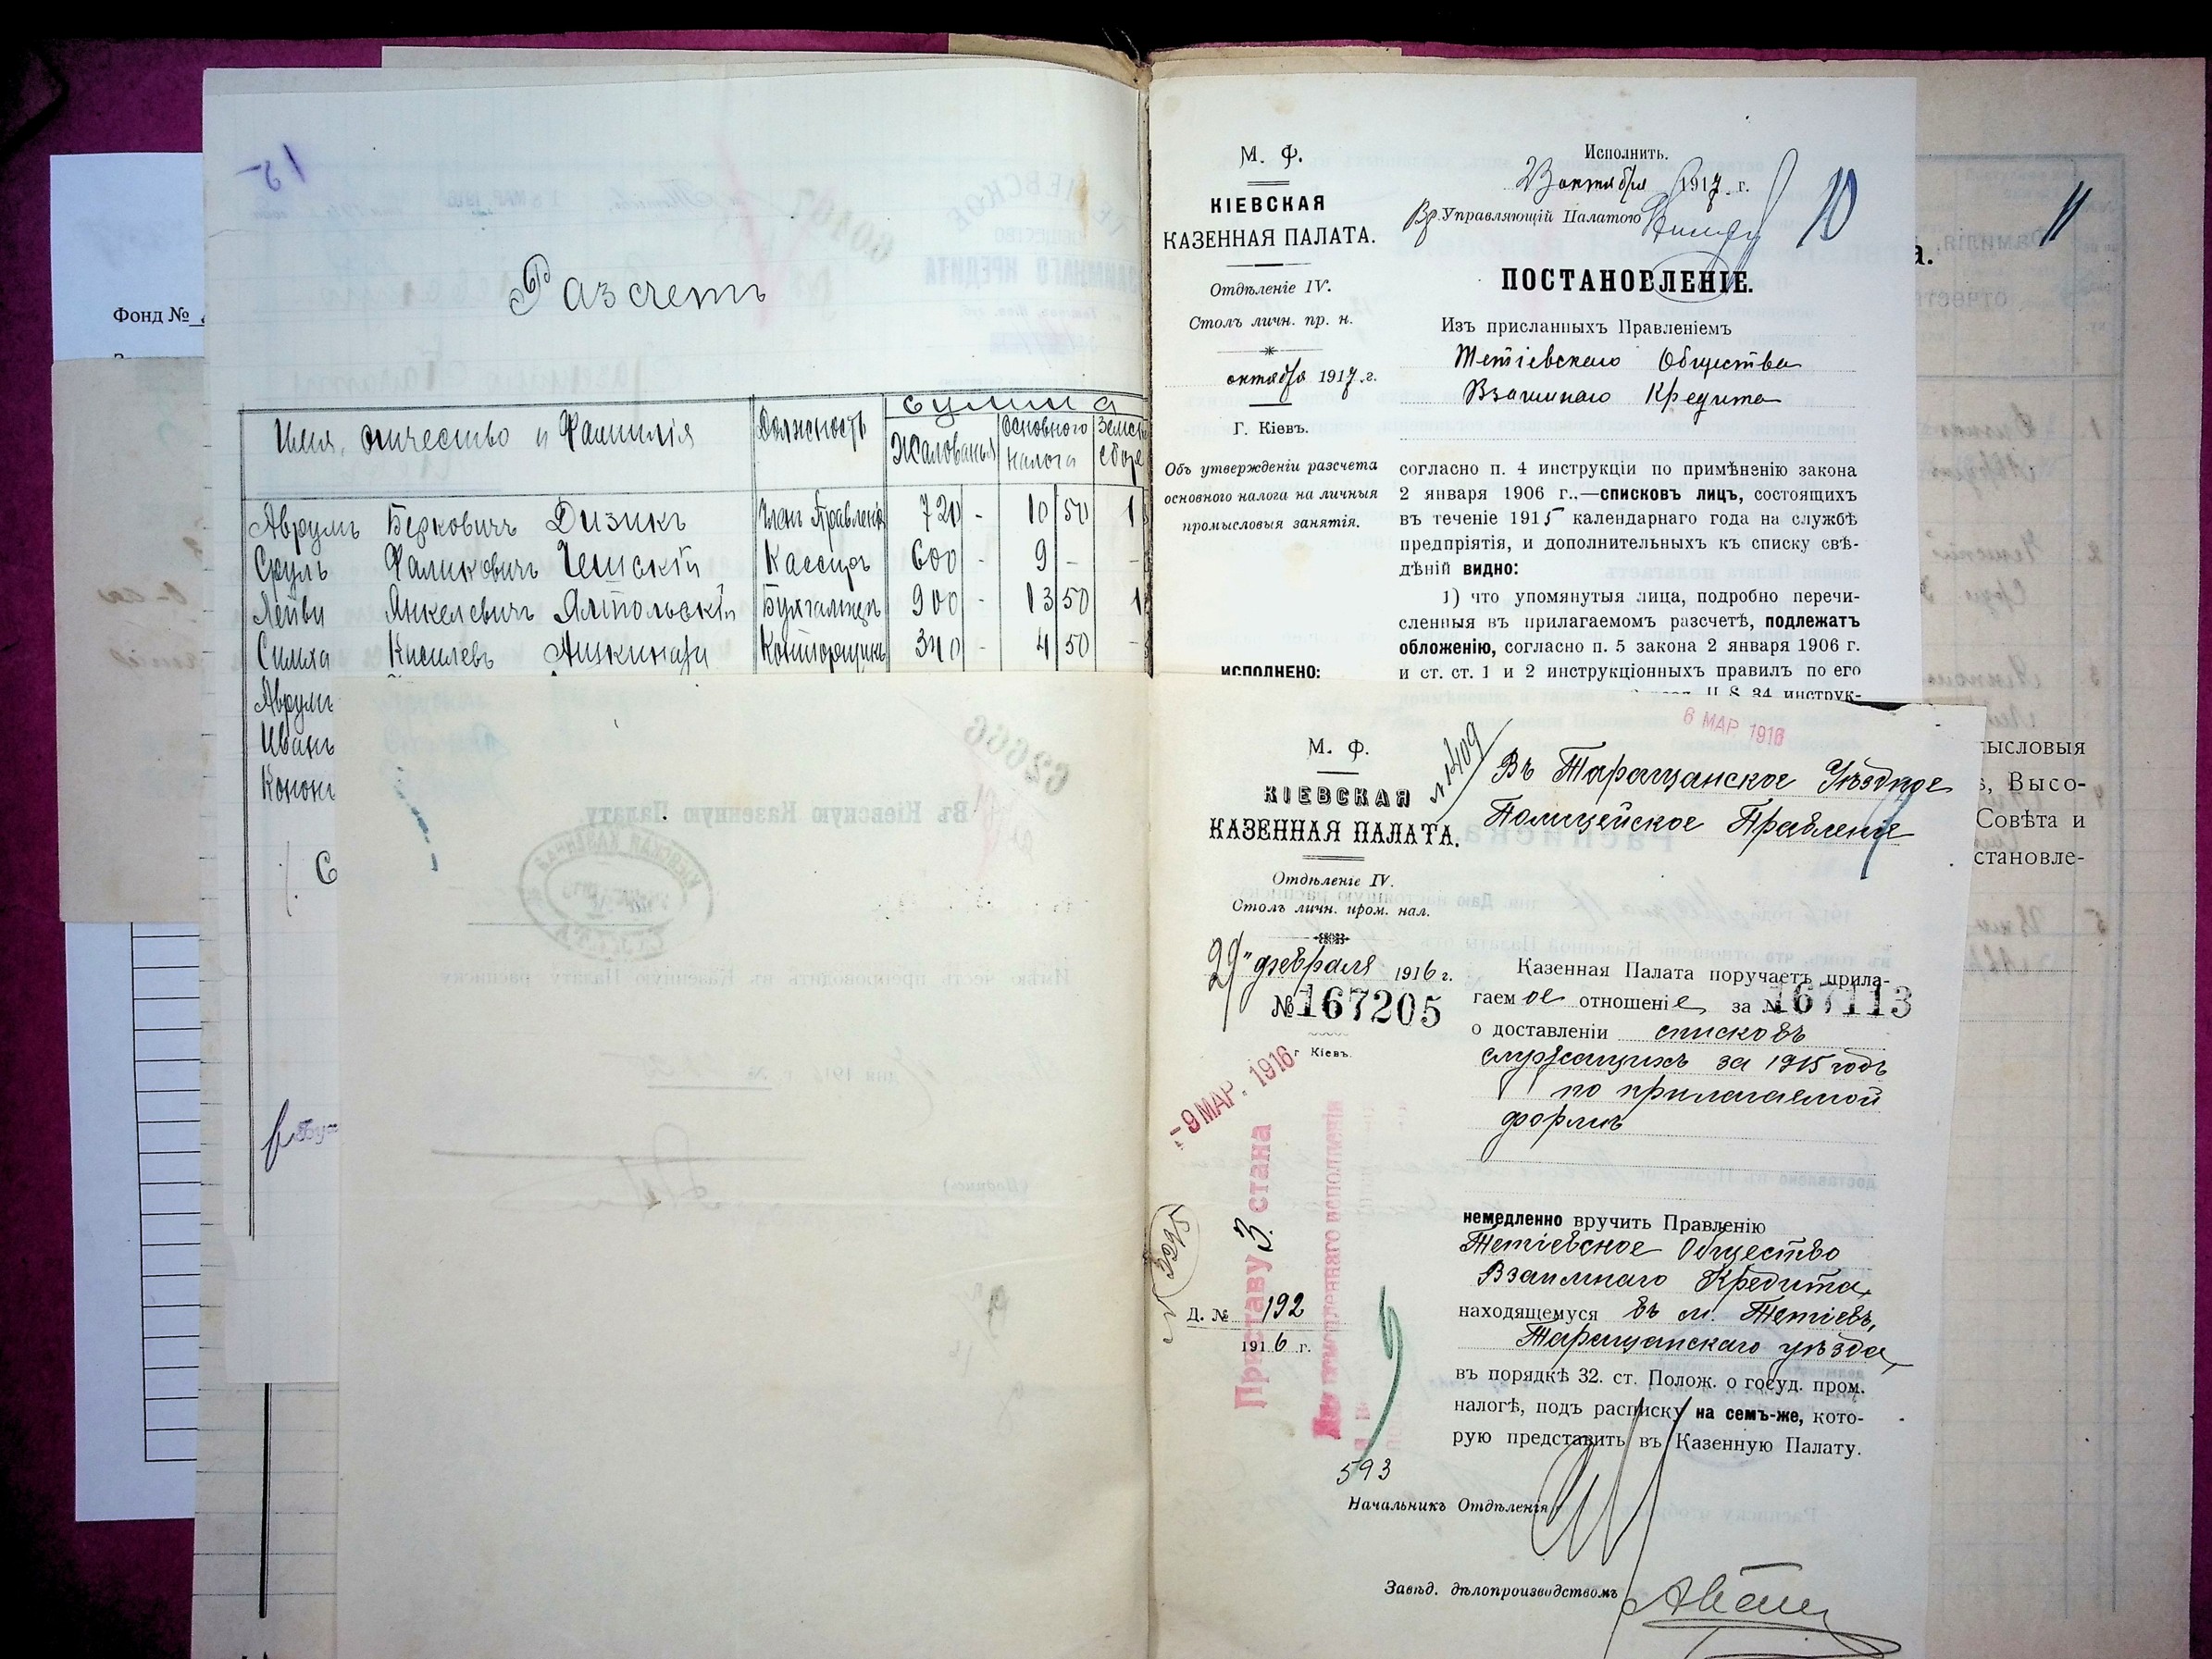 Фонд №
15
Разсчетъ
Имя, отчество и Фамилія
Должность
Сумма
Жалованья
Основного налога
Земск сбора
Аврумъ Берковичъ Дизикъ Членъ Правленія 720 - 10 50 1
Сруль Фаликовичъ Чемскій Кассиръ 600 - 9 - -
Лейви Янкелевичъ Ямпольскій Бухгалтеръ 900 - 13 50 1
Симха Кисилевъ Конторщикъ 340 - 4 50 -
Аврумъ
Иванъ
Кононъ
С
М. Ф.
КІЕВСКАЯ
КАЗЕННАЯ ПАЛАТА.
Отдѣленіе IV.
Столъ личн. пр. н.
октября 1917 г.
Г. Кіевъ.
Объ утвержденіи разсчета
основного налога на личныя
промысловыя занятія.
ИСПОЛНЕНО:
Исполнить.
23 октября 1917 г.
Вр. Управляющій Палатою
10
ПОСТАНОВЛЕНІЕ.
Изъ присланныхъ Правленіемъ
Тетіевскаго Общества
Взаимнаго Кредита
согласно п. 4 инструкціи по примѣненію закона
2 января 1906 г..—списковъ лицъ, состоящихъ
въ теченіе 1915 календарнаго года на службѣ
предпріятія, и дополнительныхъ къ списку свѣ-
дѣній видно:
1) что упомянутыя лица, подробно перечи-
сленныя въ прилагаемомъ разсчетѣ, подлежатъ
обложенію, согласно п. 5 закона 2 января 1906 г.
и ст. ст. 1 и 2 инструкціонныхъ правилъ по его
§ 34 инструк-
11
а.
мысловыя
ѣ, Высо-
Совѣта и
становле-
6 МАР 1916
М. Ф.
КІЕВСКАЯ
КАЗЕННАЯ ПАЛАТА.
Отдѣленіе IV.
Столъ личн. пром. нал.
29" февраля 1916 г.
№ 167205
г Кіевъ.
№ 1409
Въ Таращанское Уѣздное
Полицейское Правленіе
Казенная Палата поручаетъ прила-
гаемое отношеніе за № 167113
о доставленіи списковъ
служащихъ за 1915 годъ
по прилагаемой
формѣ
-9 МАР. 1916
Приставу 3. стана
Для немедленнаго исполненія
Д. № 192
1916 г.
593
немедленно вручить Правленію
Тетіевское Общество
Взаимнаго Кредита,
находящемуся въ м. Тетіевъ,
Таращанскаго уѣзда,
въ порядкѣ 32. ст. Полож. о госуд. пром.
налогѣ, подъ расписку на семъ-же, кото-
рую представить въ Казенную Палату.
Начальникъ Отдѣленія
Завѣд. дѣлопроизводствомъ